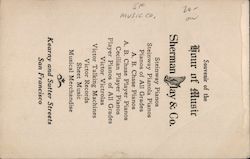 Souvenir of the
Hour of Music
Sherman Clay & Co.
Steinway Pianos
Steinway Pianola Pianos
Pianos of All Grades
A. B. Chase Pianos
A. B. Chase Player Pianos
Cecilian Player Pianos
Player Pianos of All Grades
Victor Victrolas
Victor Talking Machines
Victor Records
Sheet Music
Musical Merchandise
Kearny and Sutter Streets
San Francisco
MUSIC CO.